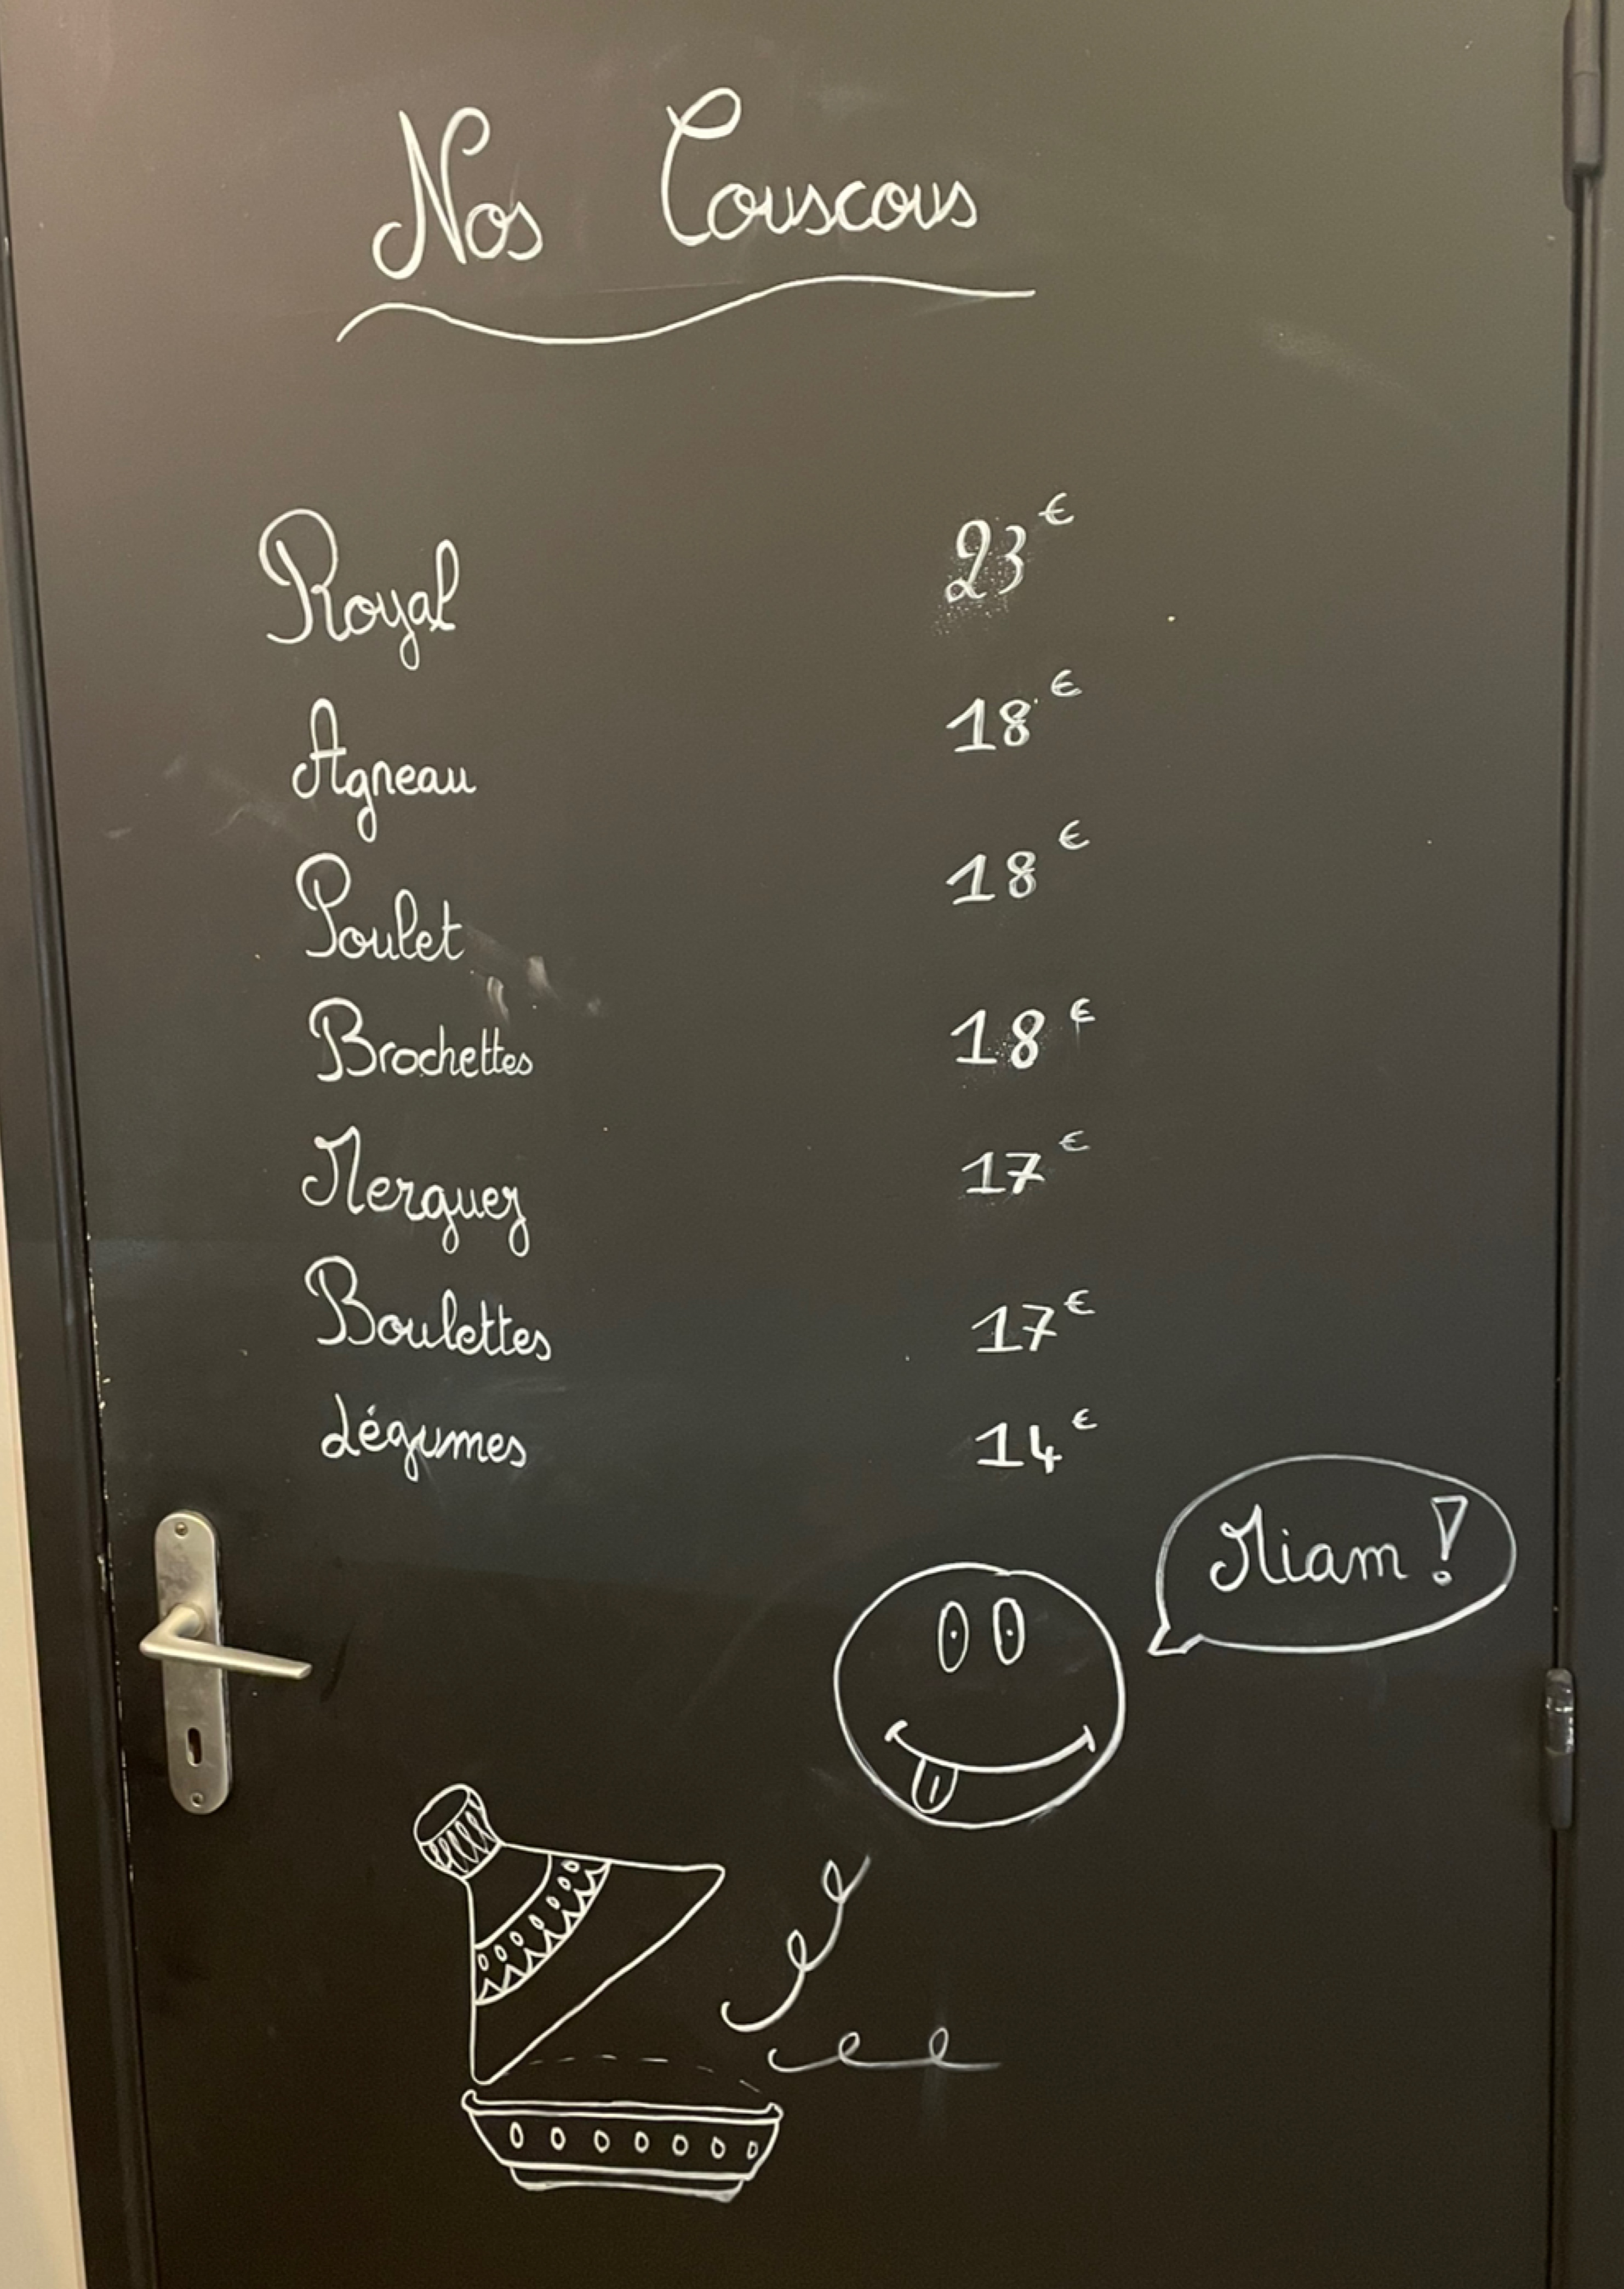 Nos Couscous
Royal 23€
Agneau 18€
Poulet 18€
Brochettes 18€
Merguez 17€
Boulettes 17€
Légumes 14€
Miam !